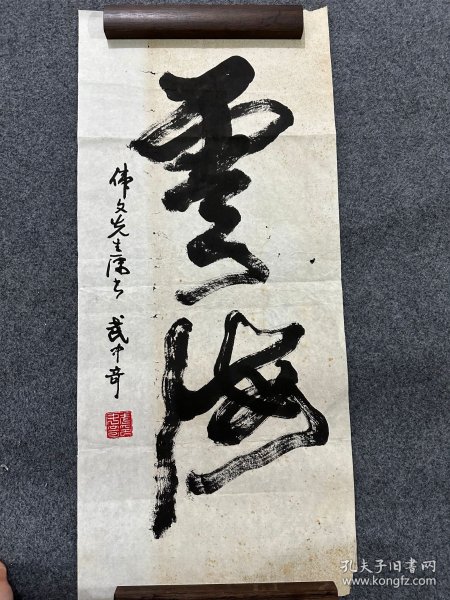 雲海
伟文先生属书 武中奇
孔夫子旧书网
www.kongfz.com